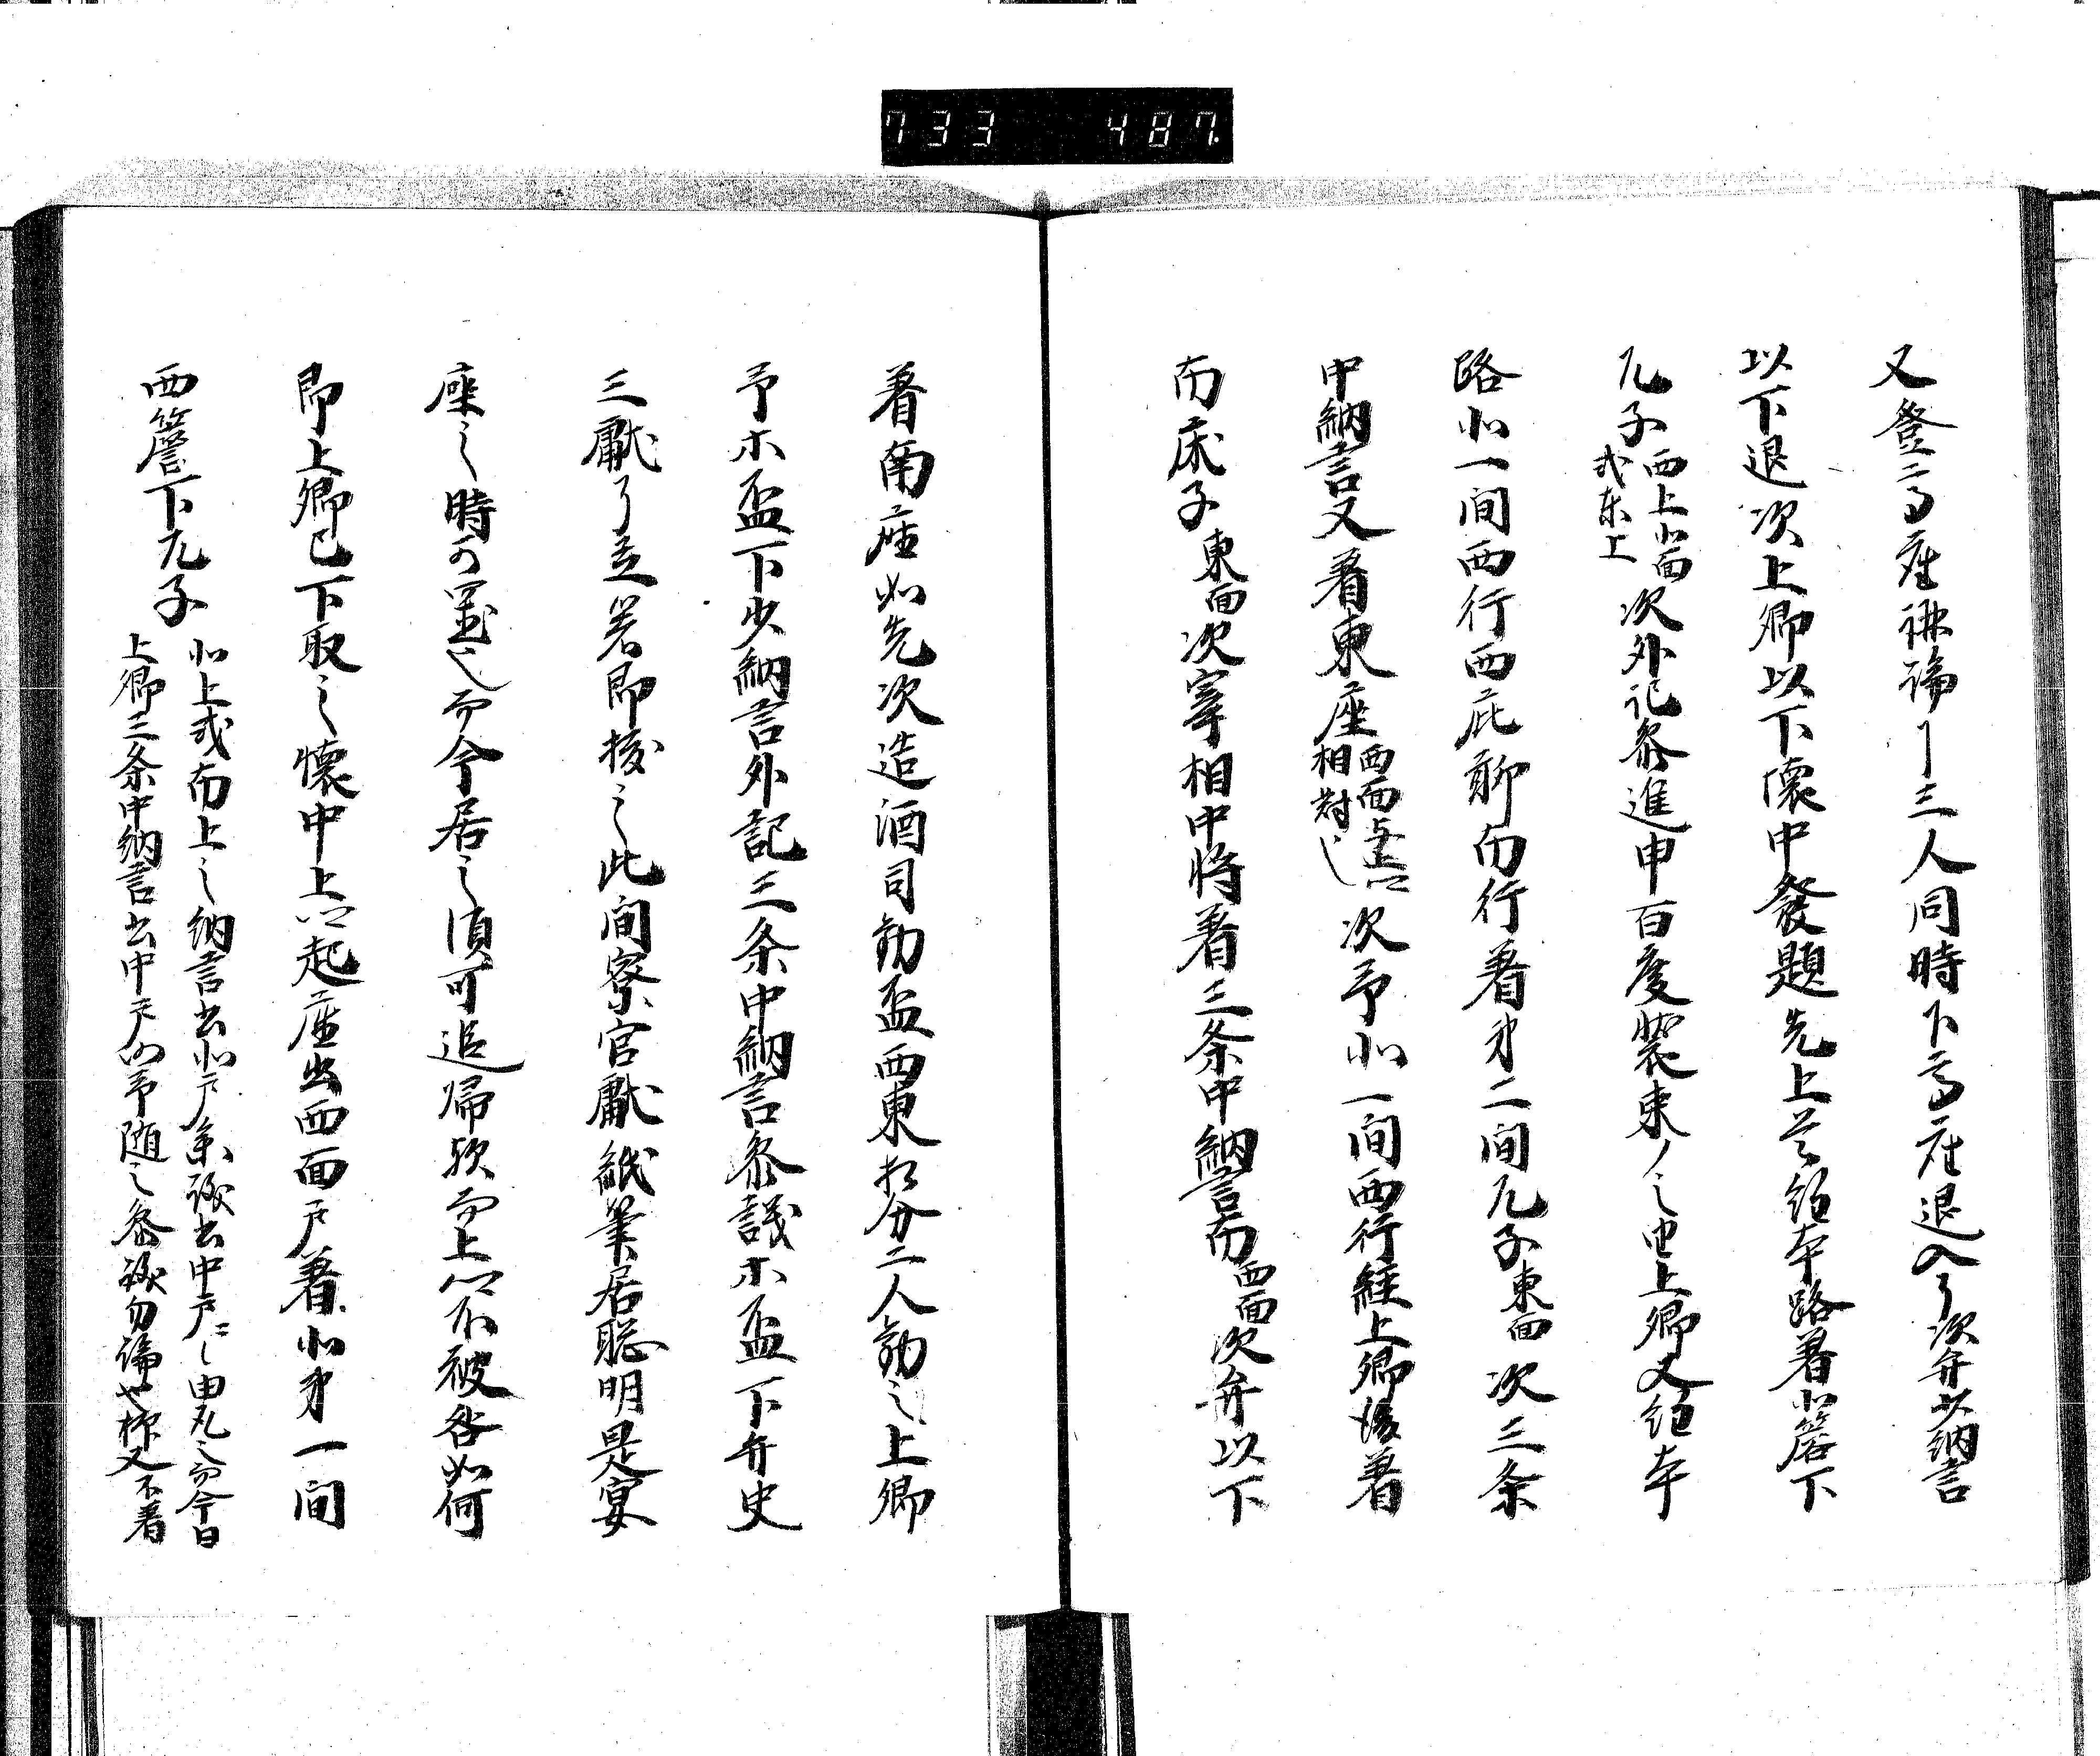 733 487.
又登高座講論了三人同時下高座退入了次弁少納言
以下退次上卿以下懐中發題先上首経本路着北簷下
兀子西上北面或東上次外記参進申百度装束了之由上卿又経本
路北一間西行西庇聊南行着第二間兀子東面次三条
中納言又着東座西面与上卿相対也次予北一間西行経上卿後着
南床子東面次宰相中将着三条中納言南西面次弁以下
着南座如先次造酒司勧盃西東相分二人勧之上卿
予等盃下少納言外記三条中納言参議等盃下弁史
三献了立箸即抜之此間寮官献紙筆居聡明是宴
座之時可置也而今居之須可追帰歟而上卿不被咎如何
即上卿已下取之懐中上卿起座出西面戸着北第一間
西簷下兀子北上或南上之納言出北戸参議出中戸之由見之而今日
上卿三条中納言出中戸仍予随之参議勿論也弁又不着